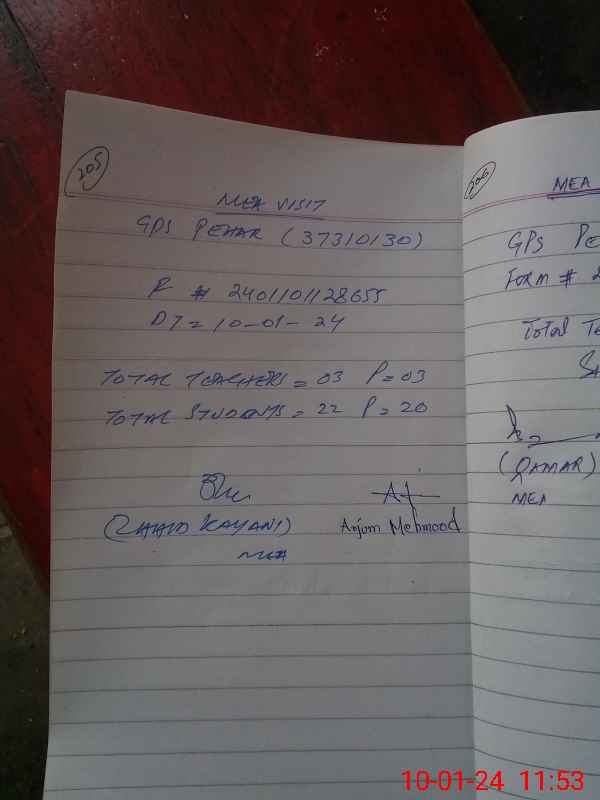 205
MEA VISIT
GPS PEHAR (37310130)
F # 2401101128655
DT = 10-01-24
TOTAL TEACHERS = 03 P = 03
TOTAL STUDENTS = 22 P = 20
(ZAHID KAYANI)
MEA
Anjum Mehmood
206
MEA
GPS PE
FORM # 2
TOTAL TE
(QAMAR)
MEA
10-01-24 11:53